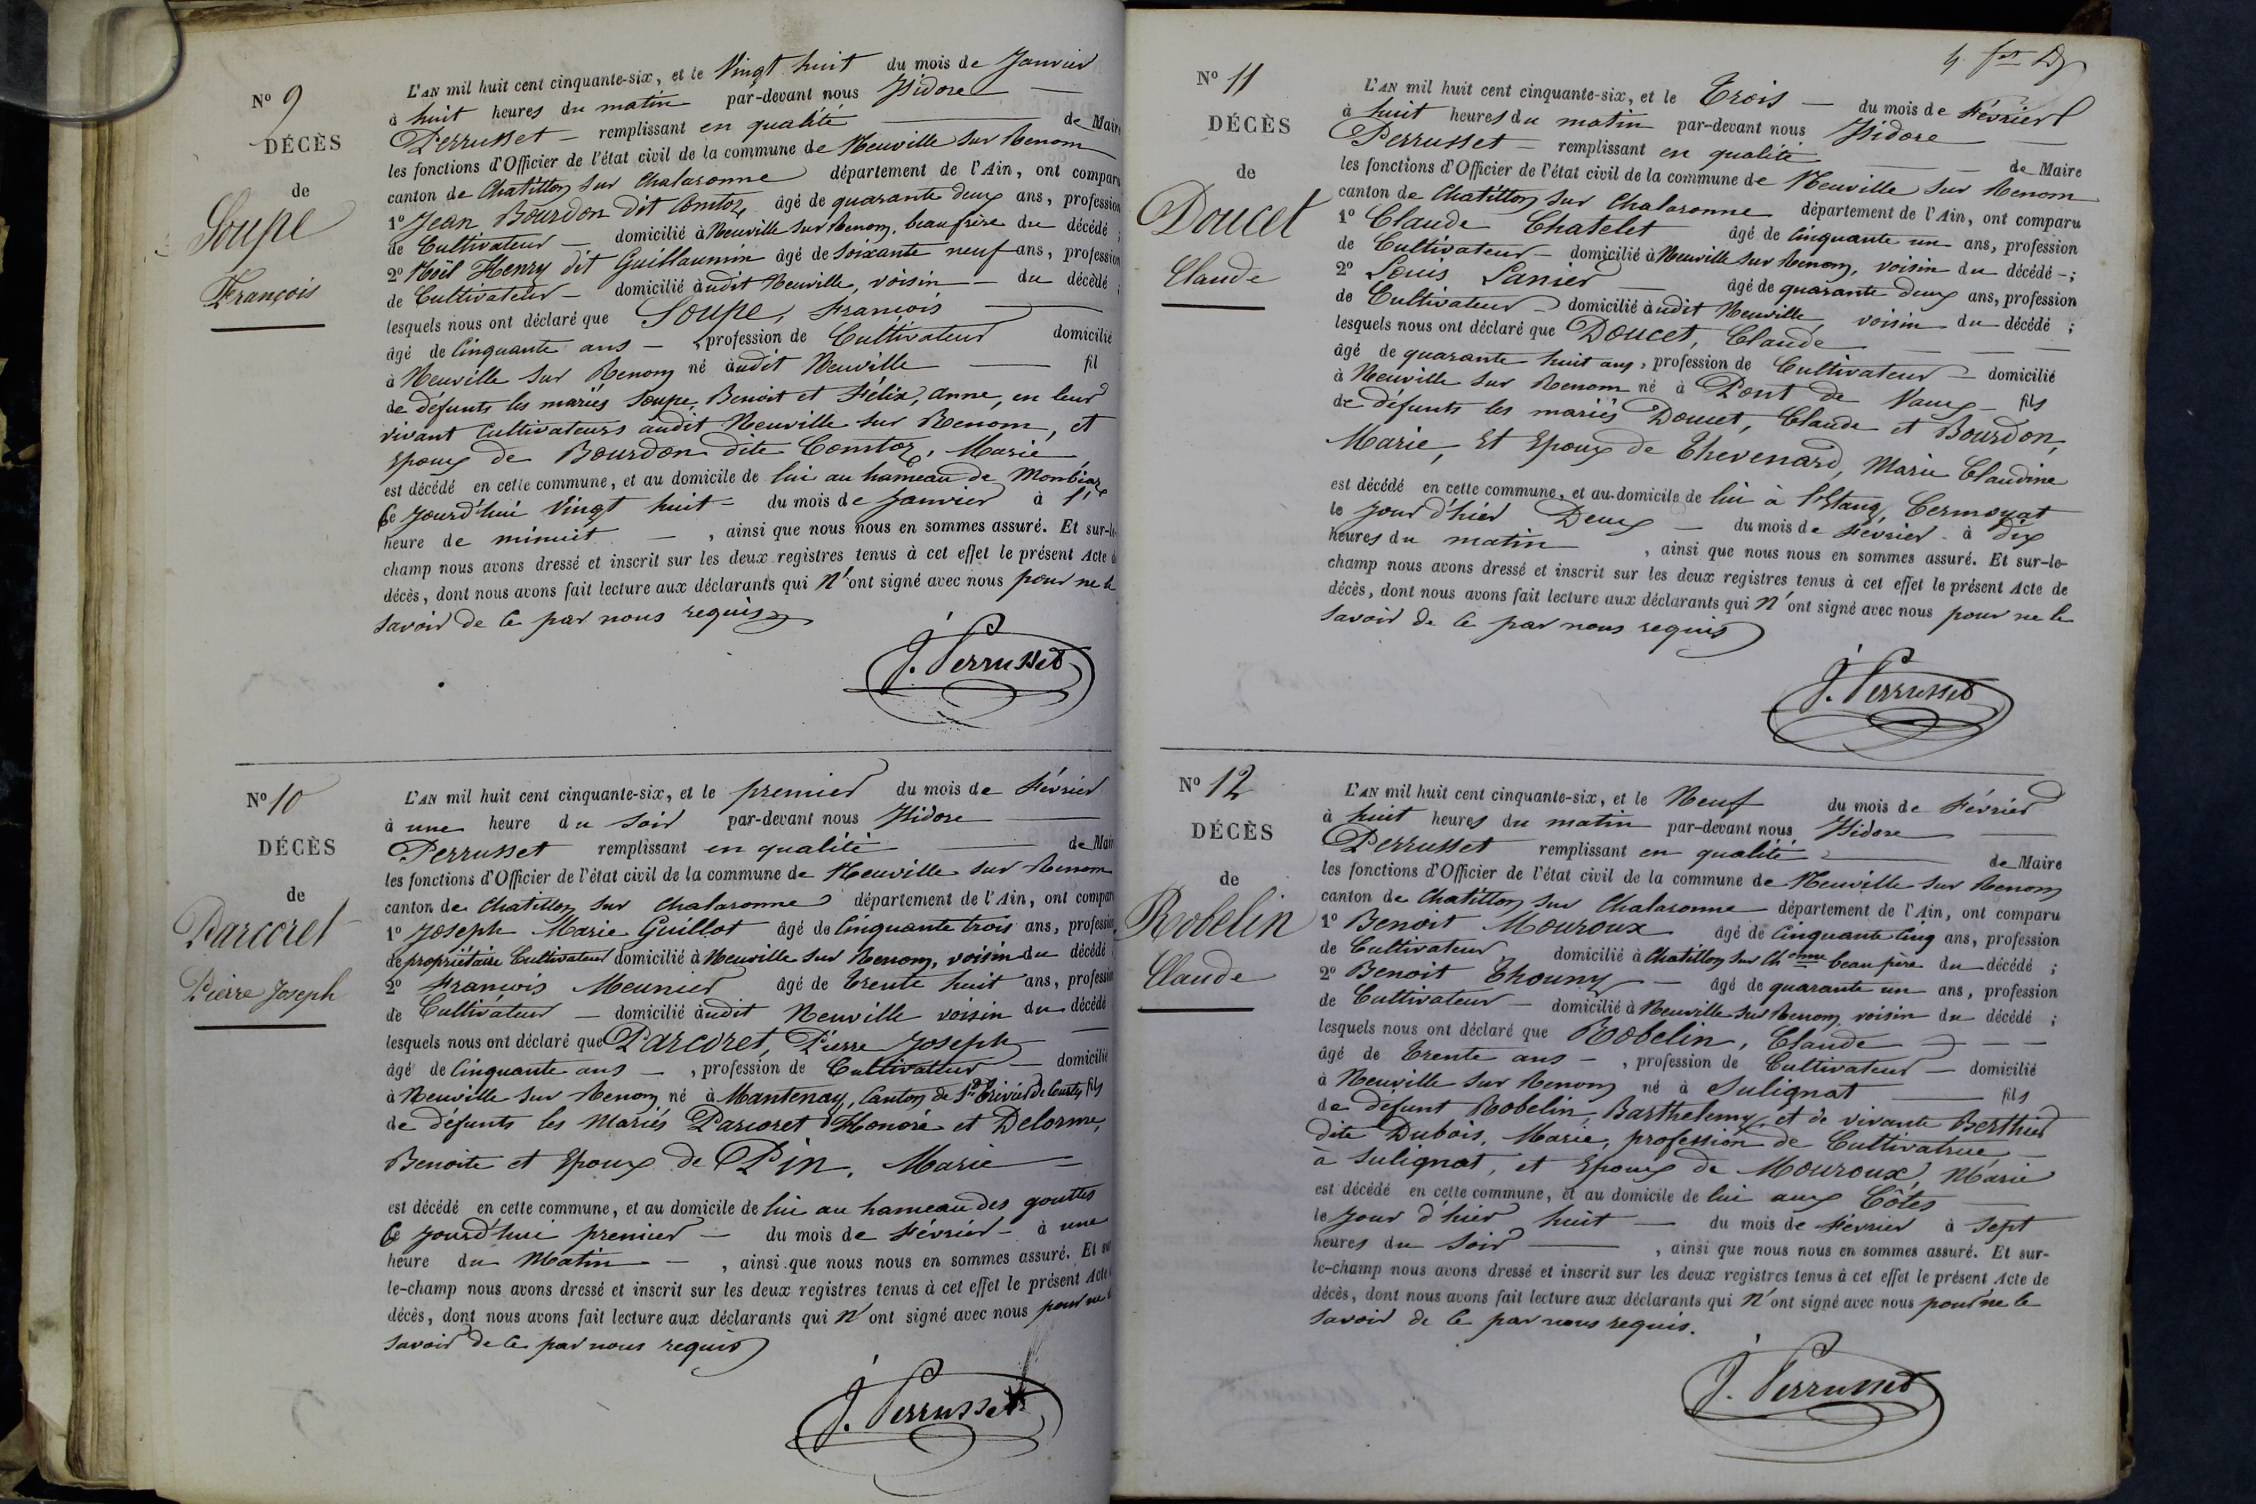 Nº 9
DÉCÈS
de
Soupe
François
L'AN mil huit cent cinquante-six, et le Vingt huit du mois de Janvier
à huit heures du matin par-devant nous Isidore
Perrusset remplissant en qualité de Maire
les fonctions d'Officier de l'état civil de la commune de Neuville sur Renom
canton de Chatillon sur Chalaronne département de l'Ain, ont comparu
1º Jean Bourdon dit Comtoz âgé de quarante deux ans, profession
de Cultivateur domicilié à Neuville sur Renom, beau frère du décédé ;
2º Noël Henry dit Guillaumin âgé de soixante neuf ans, profession
de Cultivateur domicilié audit Neuville, voisin du décédé ;
lesquels nous ont déclaré que Soupe, François
âgé de Cinquante ans, profession de Cultivateur domicilié
à Neuville sur Renom né audit Neuville fil
de défunts les mariés Soupe, Benoit et Félix, Anne, en leur
vivant Cultivateurs audit Neuville sur Renom, et
Epoux de Bourdon dite Comtoz, Marie
est décédé en cette commune, et au domicile de lui au hameau de Monbiar
Ce Jourd'hui Vingt huit du mois de Janvier à l'
heure de minuit, ainsi que nous nous en sommes assuré. Et sur-le-
champ nous avons dressé et inscrit sur les deux registres tenus à cet effet le présent Acte de
décès, dont nous avons fait lecture aux déclarants qui N'ont signé avec nous pour ne le
savoir de ce par nous requis
J. Perrusset
Nº 10
DÉCÈS
de
Parcoret
Pierre Joseph
L'AN mil huit cent cinquante-six, et le premier du mois de Février
à une heure du soir par-devant nous Isidore
Perrusset remplissant en qualité de Maire
les fonctions d'Officier de l'état civil de la commune de Neuville sur Renom
canton de Chatillon sur Chalaronne département de l'Ain, ont comparu
1º Joseph Marie Guillot âgé de Cinquante trois ans, profession
de propriétaire Cultivateur domicilié à Neuville sur Renom, voisin du décédé
2º François Meunier âgé de Trente huit ans, profession
de Cultivateur domicilié audit Neuville voisin du décédé
lesquels nous ont déclaré que Parcoret, Pierre Joseph
âgé de Cinquante ans, profession de Cultivateur domicilié
à Neuville sur Renom né à Mantenay, Canton de St Trivier de Courtes fils
de défunts les Mariés Parcoret Honoré et Delorme,
Benoite et Epoux de Pin, Marie
est décédé en cette commune, et au domicile de lui au hameau des gouttes
Ce Jourd'hui premier du mois de Février à une
heure du Matin, ainsi que nous nous en sommes assuré. Et sur
le-champ nous avons dressé et inscrit sur les deux registres tenus à cet effet le présent Acte
décès, dont nous avons fait lecture aux déclarants qui N'ont signé avec nous pour ne le
savoir de ce par nous requis
J. Perrusset
Nº 11
DÉCÈS
de
Doucet
Claude
L'AN mil huit cent cinquante-six, et le Trois du mois de Février
à huit heures du matin par-devant nous Isidore
Perrusset remplissant en qualité de Maire
les fonctions d'Officier de l'état civil de la commune de Neuville sur Renom
canton de Chatillon sur Chalaronne département de l'Ain, ont comparu
1º Claude Chatelet âgé de Cinquante un ans, profession
de Cultivateur domicilié à Neuville sur Renom, voisin du décédé ;
2º Louis Lanier âgé de quarante deux ans, profession
de Cultivateur domicilié audit Neuville voisin du décédé ;
lesquels nous ont déclaré que Doucet, Claude
âgé de quarante huit ans, profession de Cultivateur domicilié
à Neuville sur Renom né à Pont de Vaux fils
de défunts les mariés Doucet, Claude et Bourdon,
Marie, Et Epoux de Thevenard, Marie Claudine
est décédé en cette commune, et au domicile de lui à l'Etang Cermoyat
le Jour d'hier Deux du mois de Février à dix
heures du matin, ainsi que nous nous en sommes assuré. Et sur-le-
champ nous avons dressé et inscrit sur les deux registres tenus à cet effet le présent Acte de
décès, dont nous avons fait lecture aux déclarants qui N'ont signé avec nous pour ne le
savoir de ce par nous requis
J. Perrusset
Nº 12
DÉCÈS
de
Robelin
Claude
L'AN mil huit cent cinquante-six, et le Neuf du mois de Février
à huit heures du matin par-devant nous Isidore
Perrusset remplissant en qualité de Maire
les fonctions d'Officier de l'état civil de la commune de Neuville sur Renom
canton de Chatillon sur Chalaronne département de l'Ain, ont comparu
1º Benoit Mouroux âgé de Cinquante Cinq ans, profession
de Cultivateur domicilié à Chatillon sur Chnne beau père du décédé ;
2º Benoit Thouny âgé de quarante un ans, profession
de Cultivateur domicilié à Neuville sur Renom voisin du décédé ;
lesquels nous ont déclaré que Robelin, Claude
âgé de Trente ans, profession de Cultivateur domicilié
à Neuville sur Renom né à Sulignat fils
de défunt Robelin, Barthelemy, et de vivante Berthier
dite Dubois, Marie, profession de Cultivatrice
à Sulignat, et Epoux de Mouroux, Marie
est décédé en cette commune, et au domicile de lui aux Côtes
le Jour d'hier huit du mois de Février à sept
heures du soir, ainsi que nous nous en sommes assuré. Et sur-
le-champ nous avons dressé et inscrit sur les deux registres tenus à cet effet le présent Acte de
décès, dont nous avons fait lecture aux déclarants qui N'ont signé avec nous pour ne le
savoir de ce par nous requis.
J. Perrusset